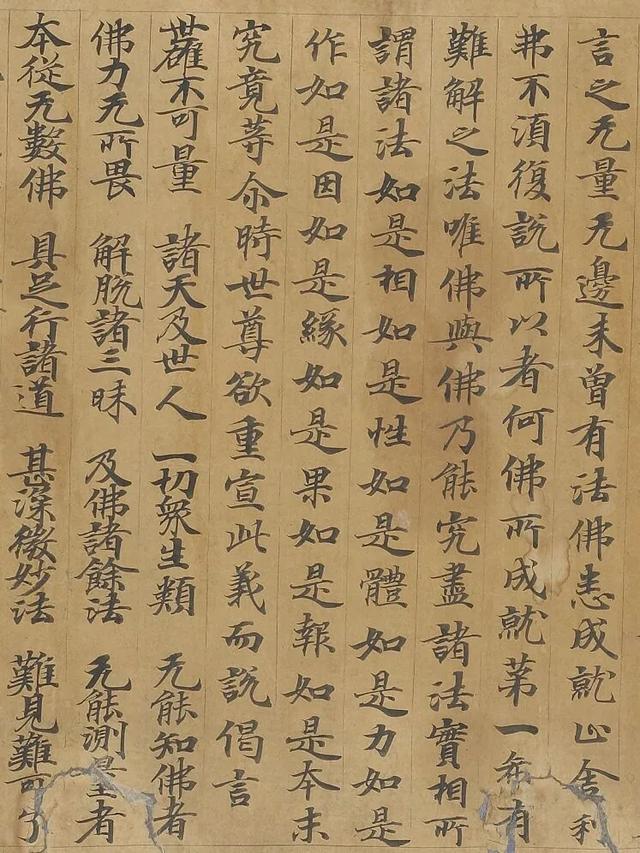 言之无量无邊未曾有法佛悉成就止舍利
弗不湏復說所以者何佛所成就苐一希有
難解之法唯佛與佛乃能究盡諸法實相所
謂諸法如是相如是性如是體如是力如是
作如是因如是緣如是果如是報如是本末
究竟等尒時世尊欲重宣此義而說偈言
世雄不可量 諸天及世人 一切衆生類 无能知佛者
佛力无所畏 解脫諸三昧 及佛諸餘法 无能測量者
本從无數佛 具足行諸道 甚深微妙法 難見難可了